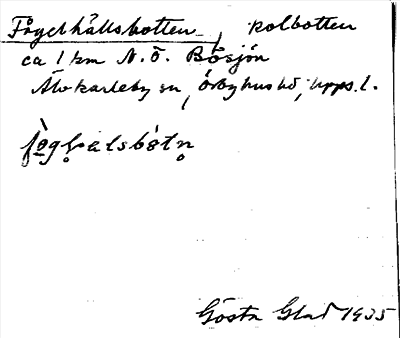 Fågelhållsbotten, kolbotten
ca 1 km N.Ö. Bösjön
Älvkarleby sn, Örbyhus hd, Upps. l.
Gösta Glad 1935